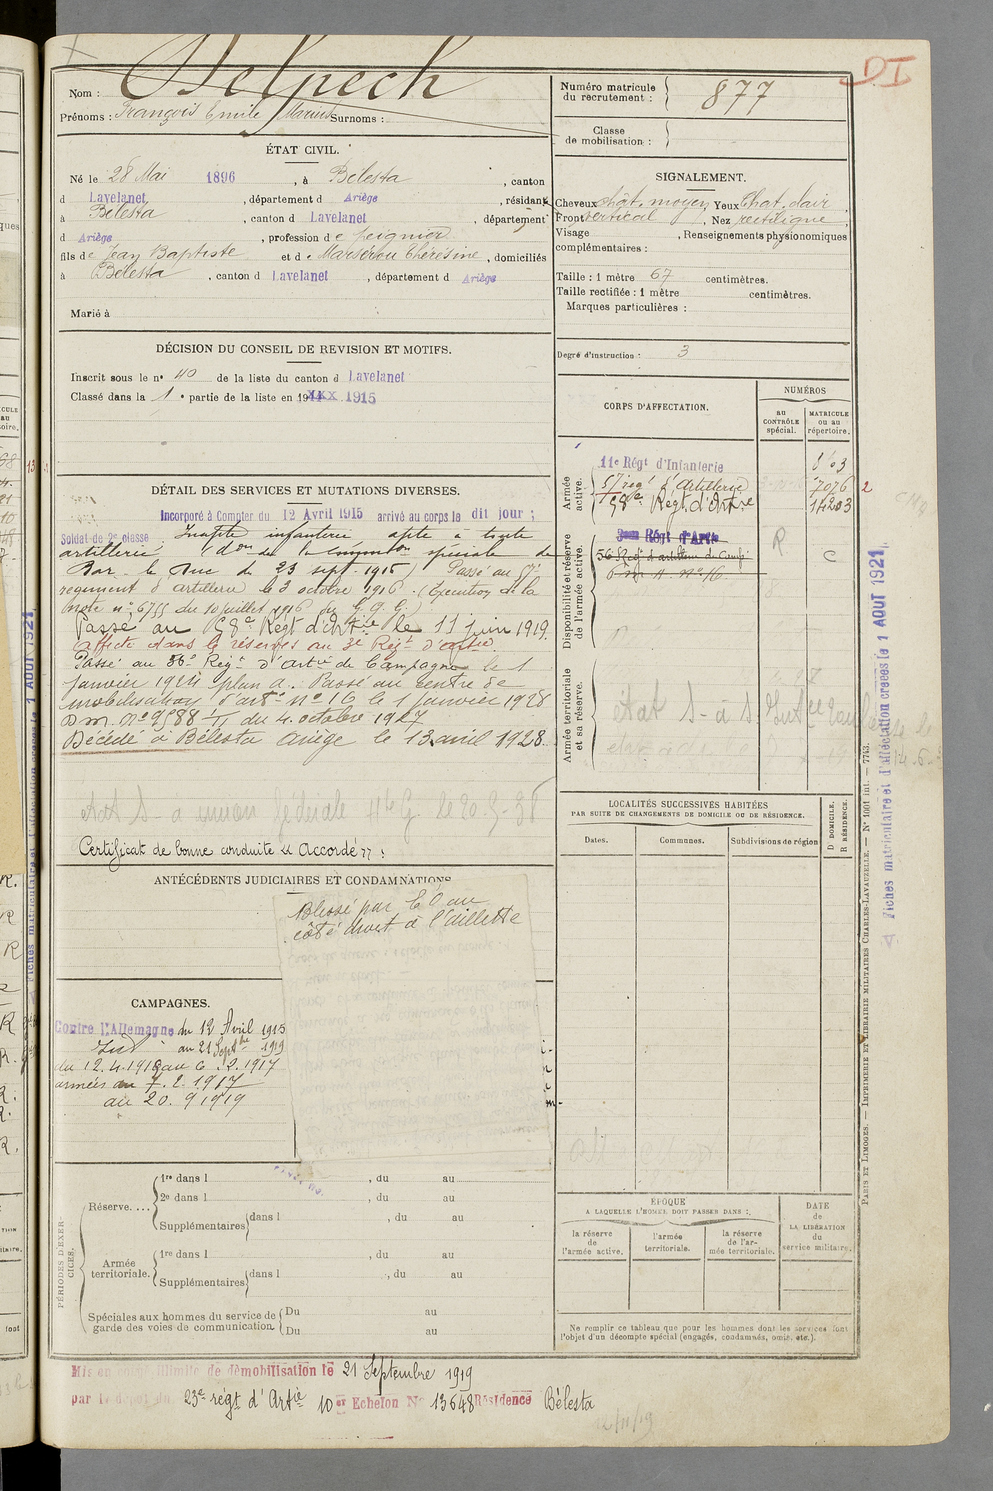 D.I
Nom : Delpech
Prénoms : François Emile Marius Surnoms :
Numéro matricule
du recrutement : 877
Classe
de mobilisation :
ÉTAT CIVIL.
Né le 28 Mai 1896, à Bélesta, canton
d Lavelanet, département d Ariège, résidant
à Bélesta, canton d Lavelanet, département
d Ariège, profession de peigneur
fils de Jean Baptiste et de Marserou Thérésine, domiciliés
à Bélesta, canton d Lavelanet, département d Ariège
Marié à
SIGNALEMENT.
Cheveux chât. moyen Yeux Chat. clair
Front vertical, Nez rectiligne
Visage , Renseignements physionomiques
complémentaires :
Taille : 1 mètre 67 centimètres.
Taille rectifiée : 1 mètre centimètres.
Marques particulières :
Degré d'instruction : 3
DÉCISION DU CONSEIL DE REVISION ET MOTIFS.
Inscrit sous le n° 40 de la liste du canton d Lavelanet
Classé dans la 1e partie de la liste en 19 1915
CORPS D'AFFECTATION.
NUMÉROS
au
CONTRÔLE
spécial.
MATRICULE
ou au
répertoire.
Armée
active.
11e Régt d'Infanterie
57 regt d'Artillerie 7076
58e Régt d'Artie 14203
2
Disponibilité et réserve
de l'armée active.
Régt d'Artie R
56 Regt d'artillerie de Camp. C
C m A. n° 16.
Armée territoriale
et sa réserve.
DÉTAIL DES SERVICES ET MUTATIONS DIVERSES.
Incorporé à Compter du 12 Avril 1915 arrivé au corps le dit jour ;
Soldat de 2e classe. Inapte infanterie apte à toute
artillerie (don de la Common spéciale de
Bar le Duc du 23 sept. 1916) Passé au 57e
regiment d'artillerie le 3 octobre 1916. (Exécution de la
Note n° 6755 du 10 juillet 1916 du G.Q.G.)
Passé au 58e Régt d'Artie le 11 juin 1919.
Affecté dans la réserve au 3e Régt d'artie.
Passé au 56e Regt d'Artie de Campagne le 1
janvier 1924 plan A. Passé au centre de
mobilisation d'artie n° 16 le 1 janvier 1928
D.M. n° 9588 du 4 octobre 1927
Décédé à Bélesta Ariège le 13 avril 1928.
Certificat de bonne conduite "Accordé" ;
LOCALITÉS SUCCESSIVES HABITÉES
PAR SUITE DE CHANGEMENTS DE DOMICILE OU DE RÉSIDENCE.
Dates.
Communes.
Subdivisions de région
D DOMICILE.
R RÉSIDENCE.
ANTÉCÉDENTS JUDICIAIRES ET CONDAMNATIONS
Blessé par E.O au
côté droit à l'aillette
CAMPAGNES.
Contre l'Allemagne du 12 Avril 1915
au 21 Septbre 1919
du 12.4.1915 au 6.2.1917
armées du 7.2.1917
au 20.9.1919
PÉRIODES D'EXERCICES.
Réserve....
1re dans l , du au
2e dans l , du au
Supplémentaires dans l , du au
Armée
territoriale.
1re dans l , du au
Supplémentaires dans l , du au
Spéciales aux hommes du service de
garde des voies de communication.
Du au
Du au
ÉPOQUE
A LAQUELLE L'HOMME DOIT PASSER DANS :
la réserve
de
l'armée active.
l'armée
territoriale.
la réserve
de l'armée territoriale.
DATE
de
LA LIBÉRATION
du
service militaire.
Ne remplir ce tableau que pour les hommes dont les services font
l'objet d'un décompte spécial (engagés, condamnés, omis, etc.).
Mis en congé illimité de démobilisation le 21 Septembre 1919
par le dépôt du 23e régt d'Artie 10e Echelon N° 13648 Résidence Bélesta
12/11/19
Fiches matriculaire et d'affectation créées le 1 AOUT 1921
PARIS ET LIMOGES. — IMPRIMERIE ET LIBRAIRIE MILITAIRES CHARLES-LAVAUZELLE. — N° 1001 int. — 7743.